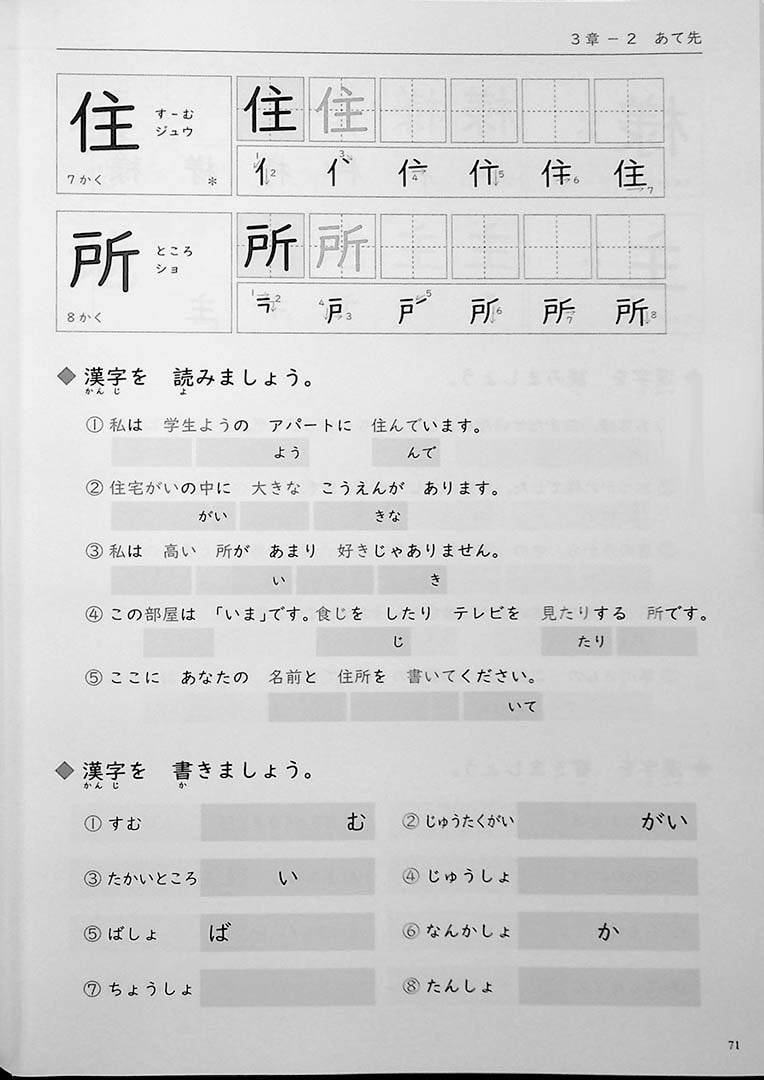 3章－2　あて先
住　すーむ
ジュウ
7かく　*
住 住
1 2 3 4 5 6 7
所　ところ
ショ
8かく
所 所
1 2 4 3 5 6 7 8
◆漢字を　読みましょう。
かんじ　よ
①私は　学生ようの　アパートに　住んでいます。
よう　んで
②住宅がいの中に　大きな　こうえんが　あります。
がい　きな
③私は　高い　所が　あまり　好きじゃありません。
い　き
④この部屋は　「いま」です。食じを　したり　テレビを　見たりする　所です。
じ　たり
⑤ここに　あなたの　名前と　住所を　書いてください。
いて
◆漢字を　書きましょう。
かんじ　か
①すむ　む　②じゅうたくがい　がい
③たかいところ　い　④じゅうしょ
⑤ばしょ　ば　⑥なんかしょ　か
⑦ちょうしょ　⑧たんしょ
71